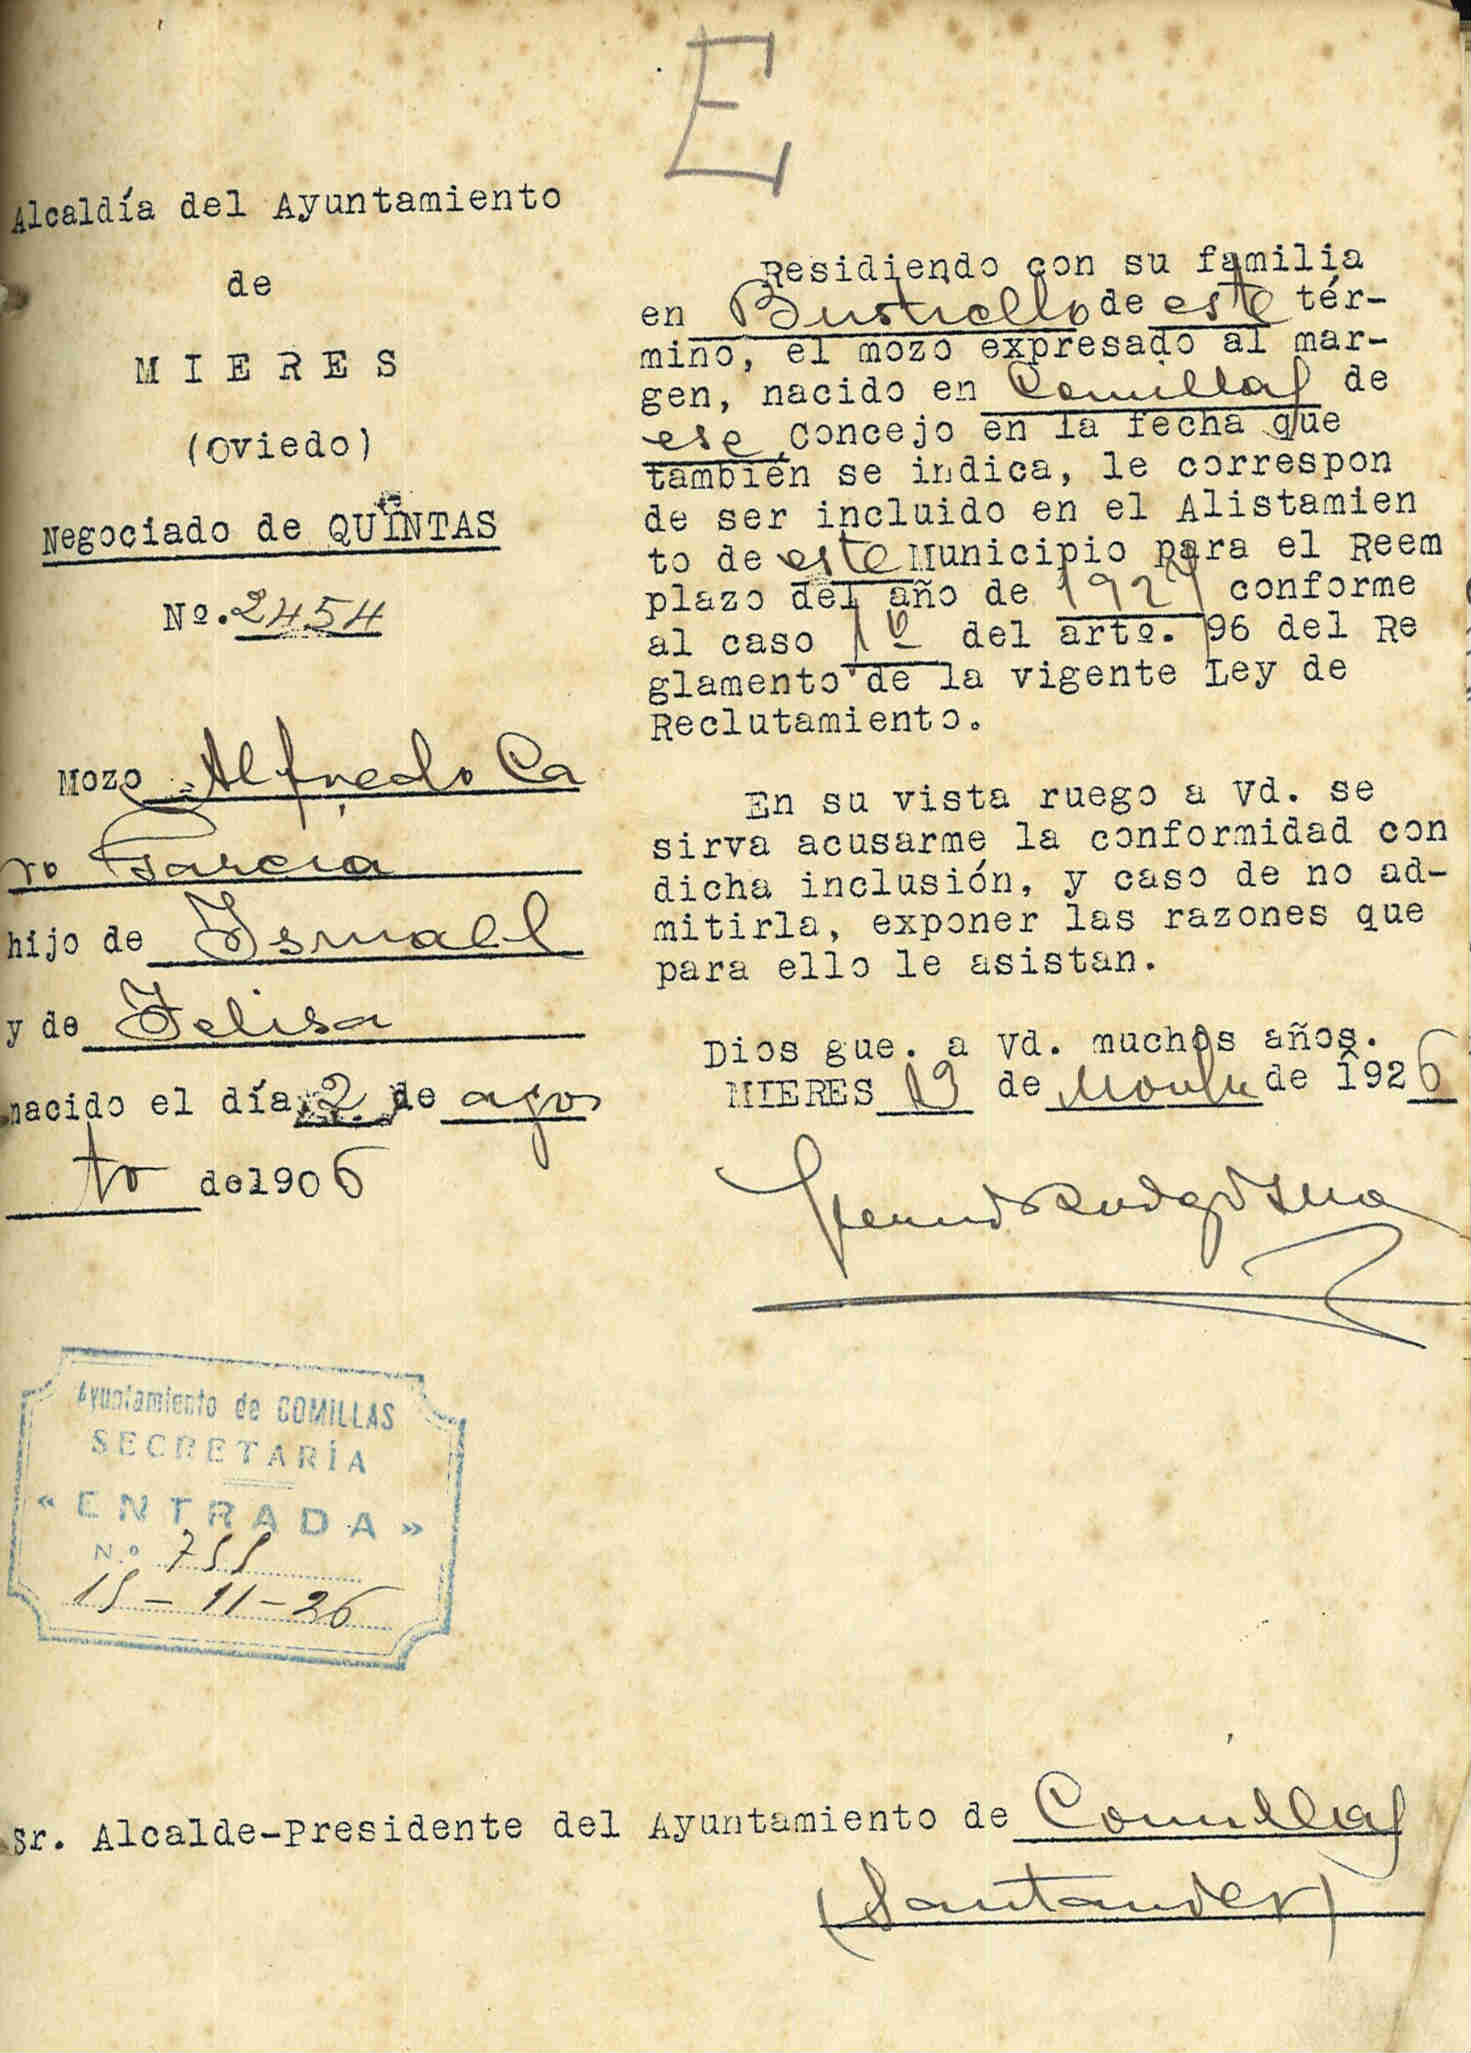 E
Alcaldía del Ayuntamiento
de
MIERES
(Oviedo)
Negociado de QUINTAS
Nº.2454
Mozo Alfredo Ca
ro García
hijo de Ismael
y de Felisa
nacido el día 2 de agos
to de 1906
Residiendo con su familia
en Bustiello de este tér-
mino, el mozo expresado al mar-
gen, nacido en Comillas de
ese Concejo en la fecha que
también se indica, le correspon
de ser incluido en el Alistamien
to de este Municipio para el Reem
plazo del año de 1927 conforme
al caso 1º del artº. 96 del Re
glamento de la vigente Ley de
Reclutamiento.
En su vista ruego a Vd. se
sirva acusarme la conformidad con
dicha inclusión, y caso de no ad-
mitirla, exponer las razones que
para ello le asistan.
Dios gue. a Vd. muchos años.
MIERES 13 de Novbre de 1926
Ayuntamiento de COMILLAS
SECRETARÍA
«ENTRADA»
N.º 755
15-11-26
Sr. Alcalde-Presidente del Ayuntamiento de Comillas
(Santander)